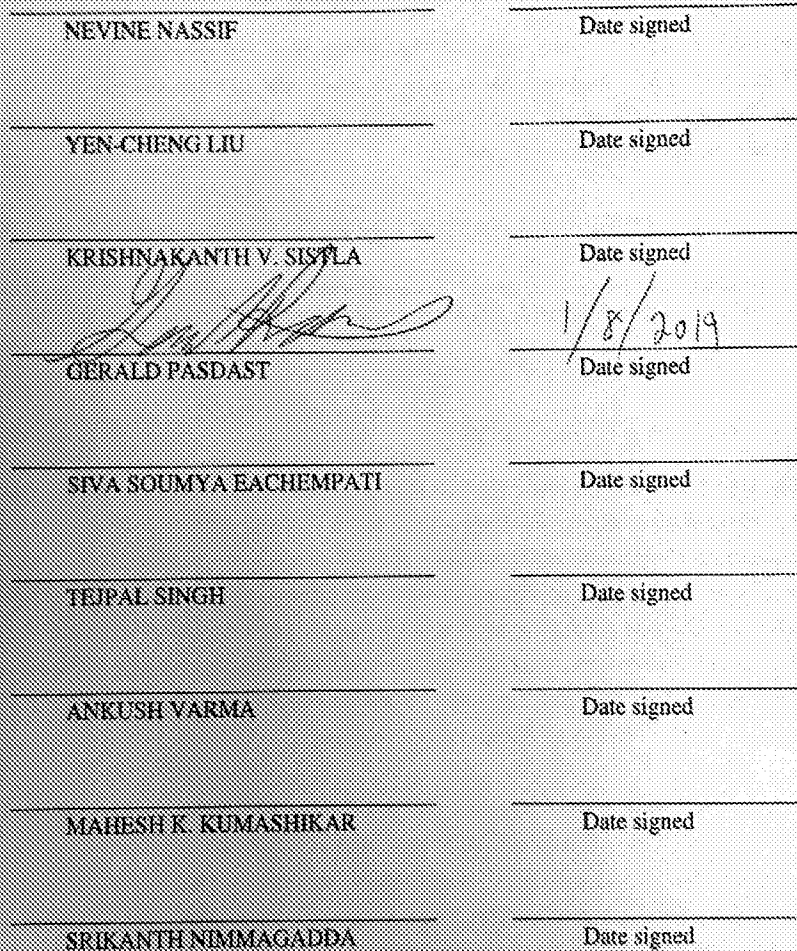 NEVINE NASSIF Date signed
YEN-CHENG LIU Date signed
KRISHNAKANTH V. SISTLA Date signed
1/8/2019
GERALD PASDAST Date signed
SIVA SOUMYA EACHEMPATI Date signed
TEJPAL SINGH Date signed
ANKUSH VARMA Date signed
MAHESH K. KUMASHIKAR Date signed
SRIKANTH NIMMAGADDA Date signed